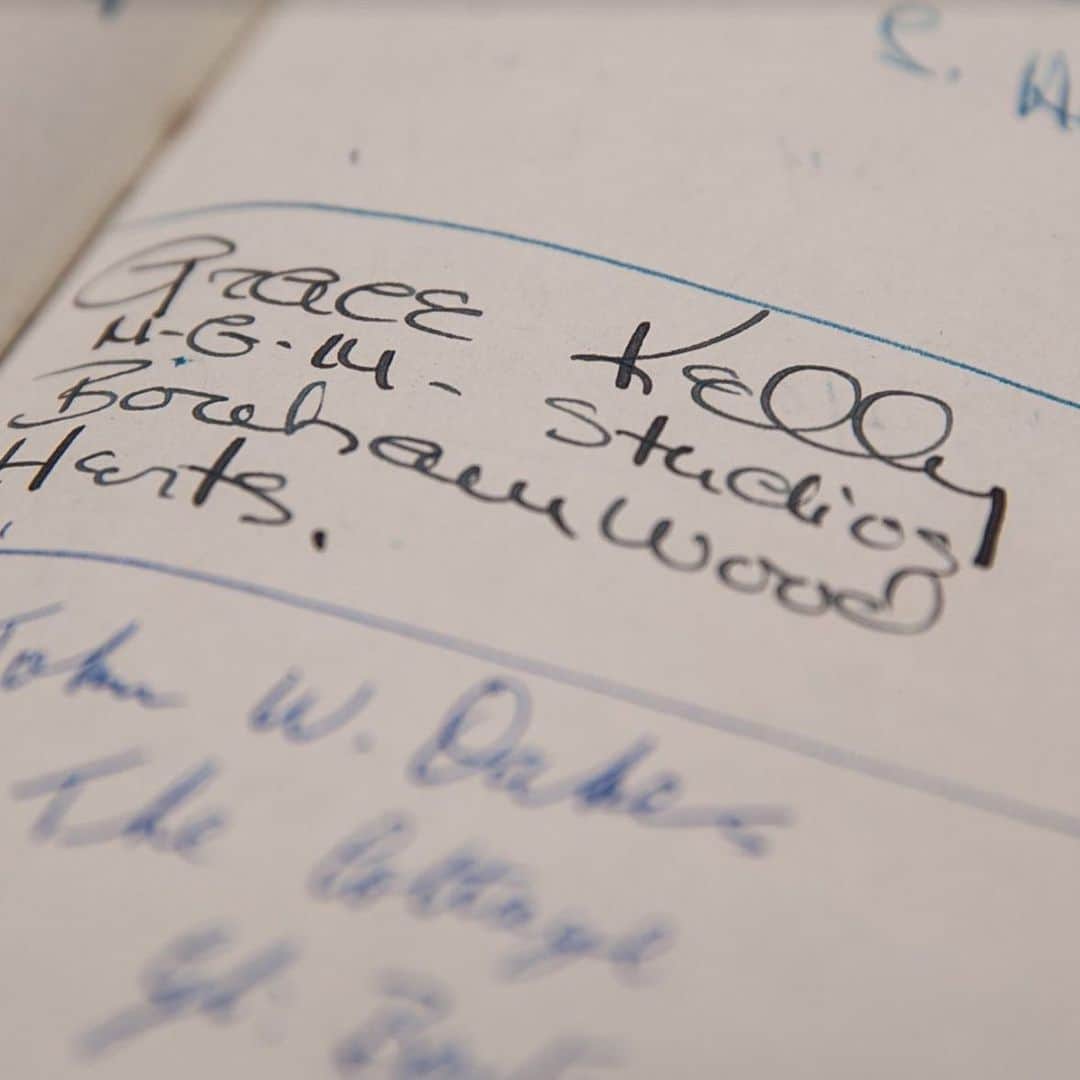 Grace Kelly
M-G-M- Studios
Boreham Wood
Herts.
John W.
The Cottage